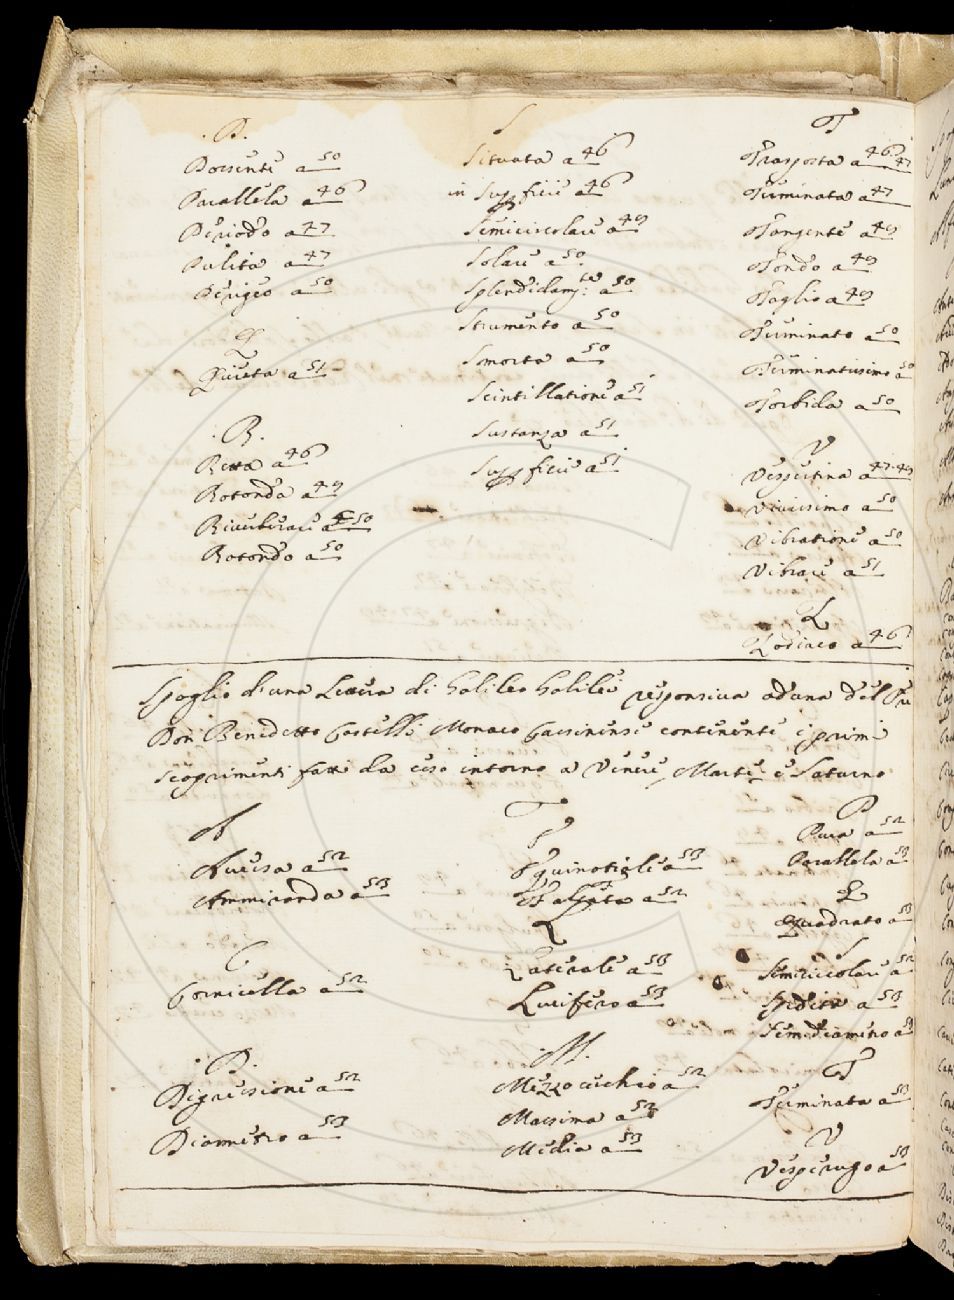 .P.
Possente a 50
Parallela a 46
Periodo a 47
Pulita a 47
Perigeo a 50
Q
Quieta a 51
.R.
Retta a 46
Rotonda a 49
Riverberare a 50
Rotondo a 50
S
Situata a 46
in Supficie a 46
Semicircolare a 49
Solare a 50
Splendidamte: a 50
Strumento a 50
Smorta a 50
Scintillatione a 51
Sustanza a 51
Supficie a 51
T
Trasposta a 46 47
Terminata a 47
Tangente a 49
Tondo a 49
Taglio a 49
Terminato a 50
Terminatissimo a 50
Torbida a 50
V
Vespertina a 47.49
Vivissimo a 50
Vibratione a 50
Vibrare a 51
Z
Zodiaco a 46
Spoglio d'una Lettera di Galileo Galilei responsiva ad una del
Don Benedetto Castelli Monaco Casinense continente i primi
scoprimenti fatti da esso intorno a Venere, Marte e Saturno
A
Avversa a 52
Ammiranda a 53
C
Cornicella a 52
.D.
Digressione a 52
Diametro a 53
F
Falcata a 52
L
Laterale a 53
Lucifero a 53
.M.
Mezzo cerchio a 52
Massima a 53
Media a 53
P
Pura a 52
Parallela a 53
Q
Quadrato a 53
S
Semicircolare a 52
a 53
Semidiametro a 53
T
Terminata a 53
V
Vesperugo a 53